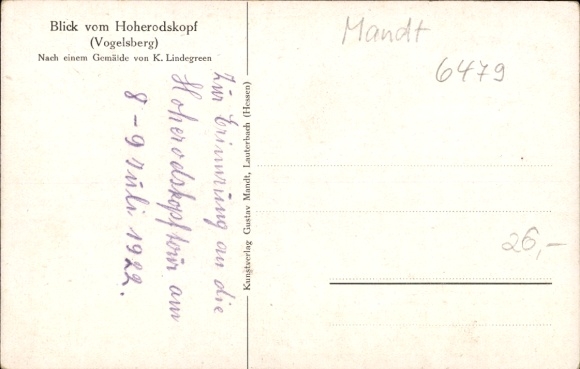 Blick vom Hoherodskopf
(Vogelsberg)
Nach einem Gemälde von K. Lindegreen
Zur Erinnrung an die
Hoherodskopftour am
8-9 Juli 1922.
Kunstverlag Gustav Mandt, Lauterbach (Hessen)
Mandt
6479
26,-